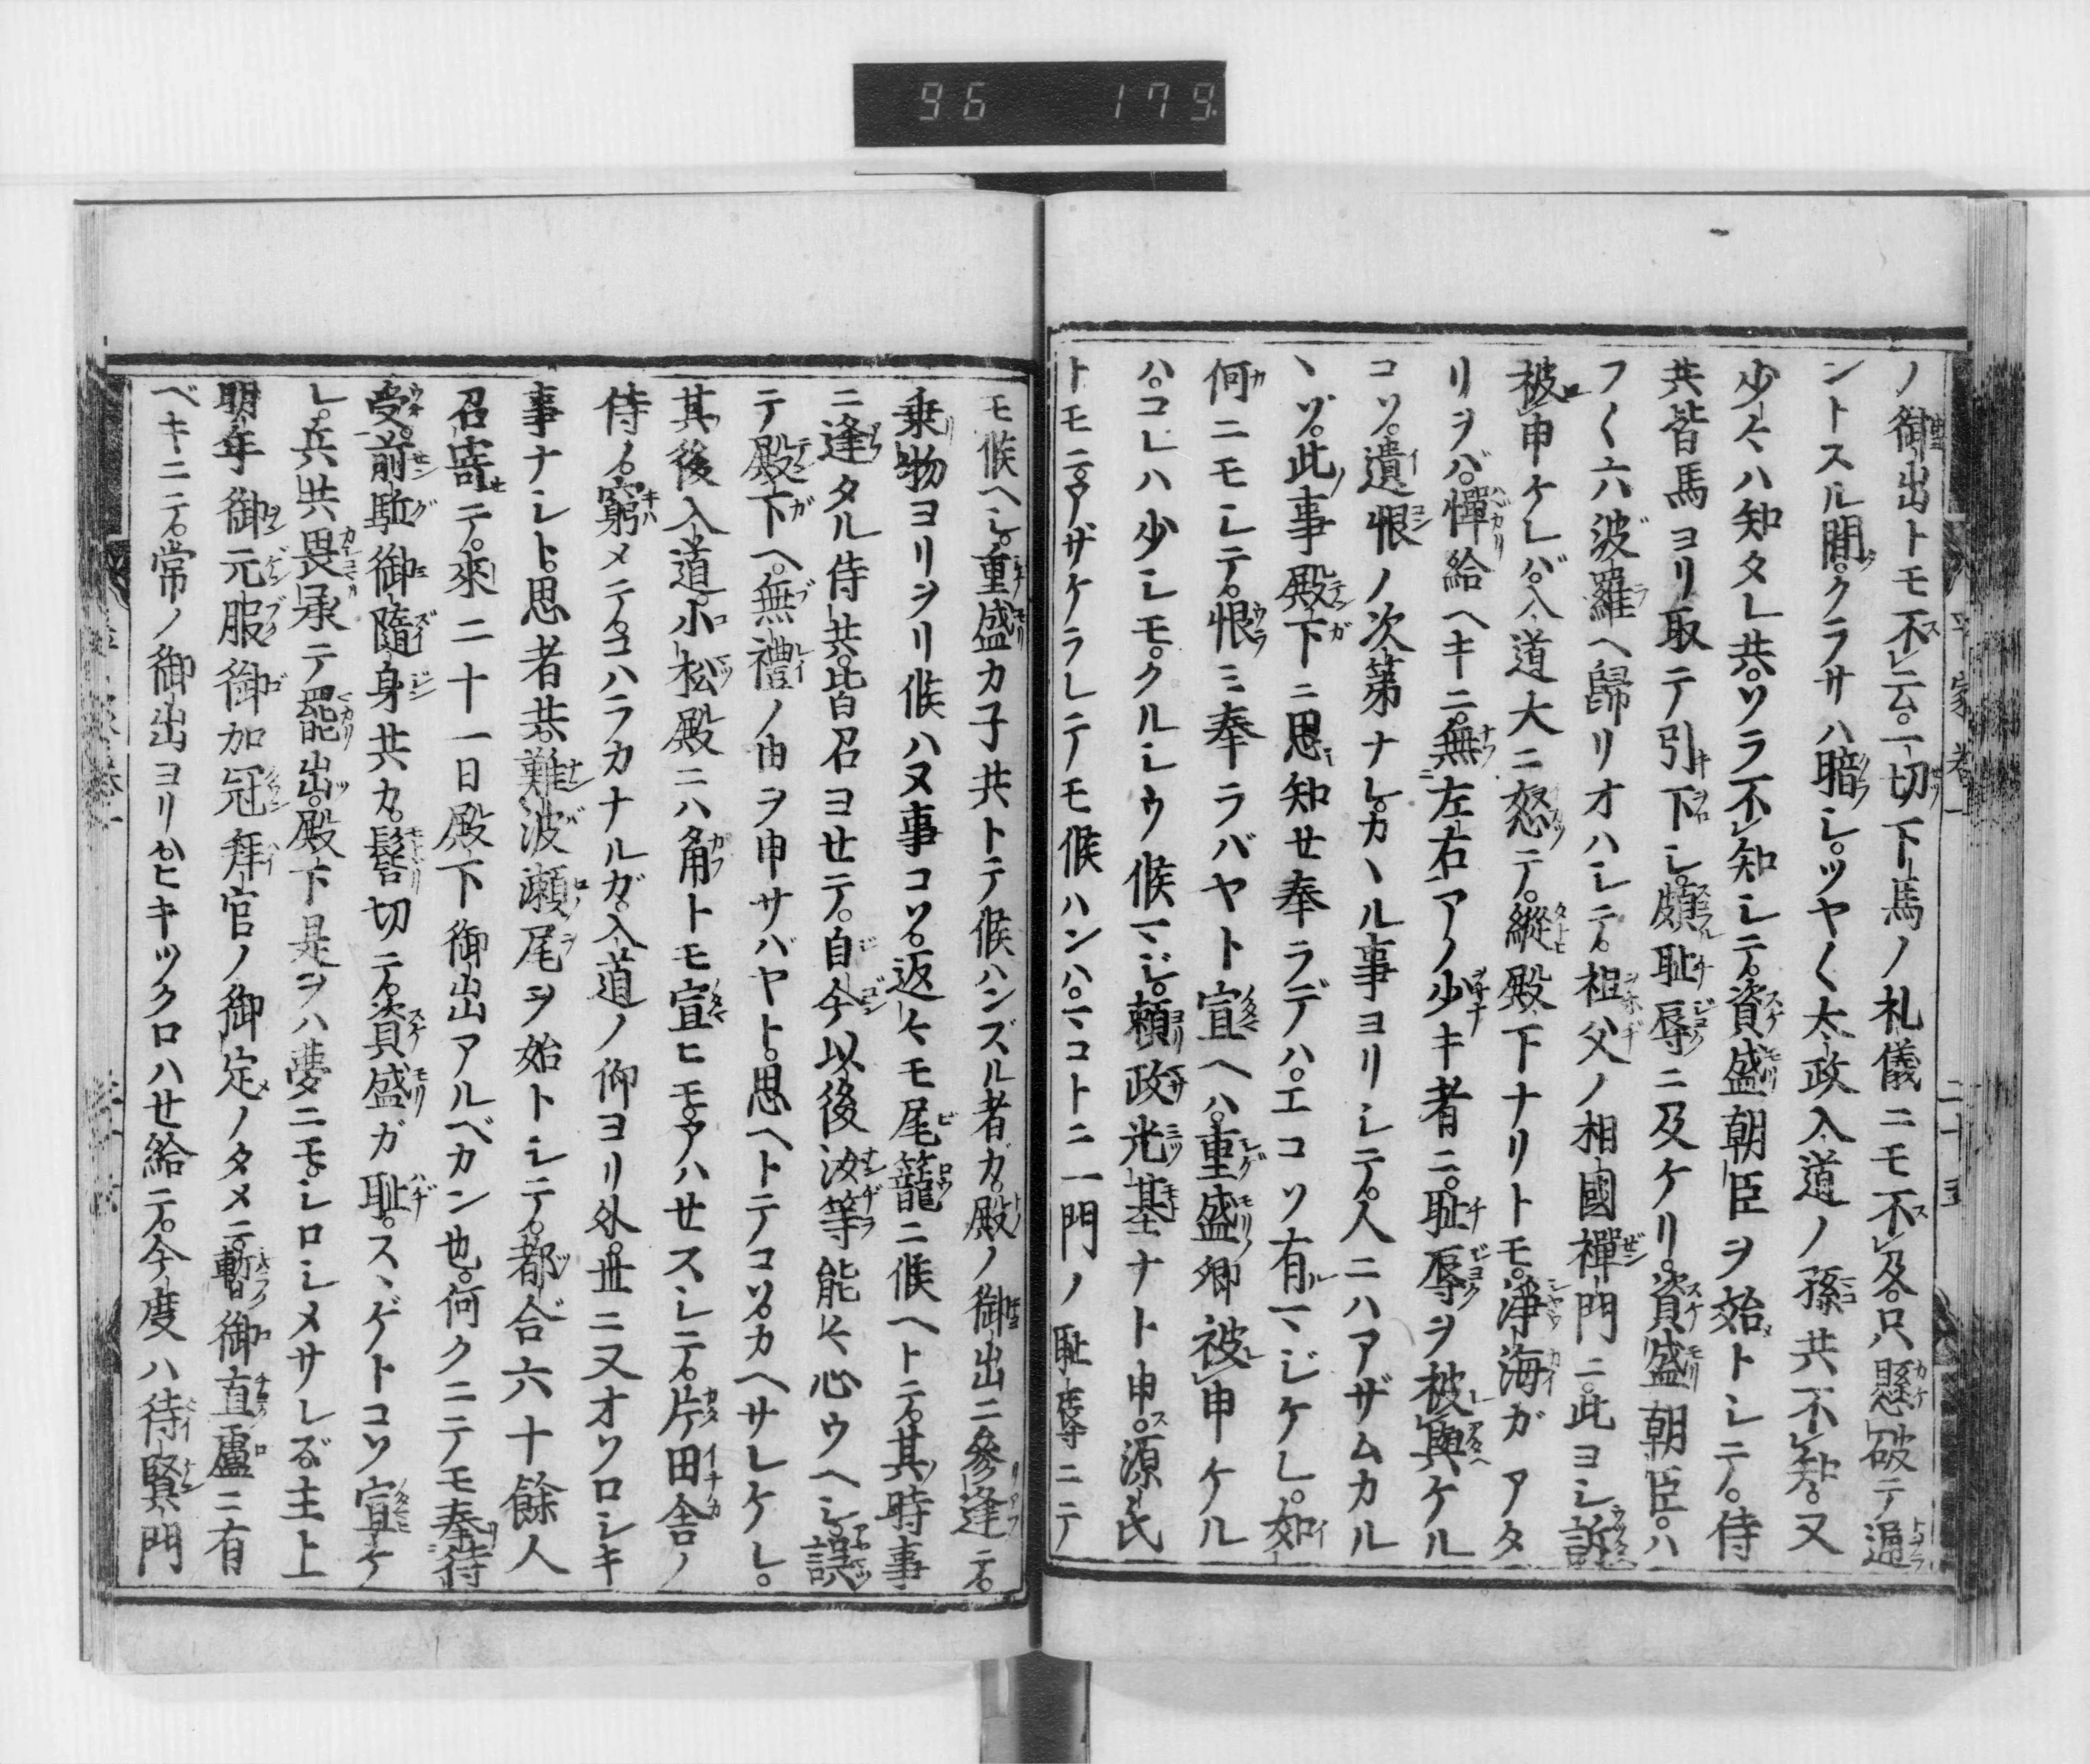 96 179
ノ御出トモ不レ云。一切下馬ノ礼儀ニモ不レ及。只懸破テ通
ントスル間。クラサハ暗シ。ツヤ〱太政入道ノ孫共不レ知。又
少々ハ知タレ共。ソラ不レ知シテ。資盛朝臣ヲ始トシテ。侍
共皆馬ヨリ取テ引下シ。頗耻辱ニ及ケリ。資盛朝臣。ハ
フ〱六波羅ヘ歸リオハシテ。祖父ノ相國禪門ニ。此ヨシ訴
被レ申ケレバ。入道大ニ怒テ。縱殿下ナリトモ。淨海ガアタ
リヲバ。憚給ヘキニ。無二左右一アノ少キ者ニ。耻辱ヲ被レ與ケル
コソ。遺恨ノ次第ナレ。カヽル事ヨリシテ。人ニハアザムカル
ヽゾ。此事殿下ニ思知セ奉ラデハ。エコソ有マジケレ。如
何ニモシテ。恨ミ奉ラバヤト宣ヘハ。重盛卿被レ申ケル
ハ。コレハ少シモ。クルシウ候マジ。頼政光基ナト申。源氏
トモニ。アザケラレテモ候ハンハ。マコトニ一門ノ耻辱ニテ
平家卷一 二十五
モ候ヘシ。重盛カ子共トテ候ハンズル者カ。殿ノ御出ニ參逢テ。
乗物ヨリヲリ候ハヌ事コソ。返々モ尾籠ニ候ヘトテ。其時事
ニ逢タル侍共。皆召ヨせテ。自今以後汝等能々心ウヘシ。誤
テ殿下ヘ。無禮ノ由ヲ申サバヤト。思ヘトテコソ。カヘサレケレ。
其後入道。小松殿ニハ角トモ宣ヒモ。アハせスシテ。片田舎ノ
侍ノ。窮メテ。コハラカナルガ。入道ノ仰ヨリ外。世ニ又オソロシキ
事ナシト。思者共。難波瀬尾ヲ始トシテ。都合六十餘人
召寄テ。來二十一日殿下御出アルベカン也。何クニテモ奉レ待
受。前駈御隨身共カ。髻切テ。資盛ガ耻。スヽゲトコソ宣ケ
レ。兵共畏承テ罷出。殿下是ヲハ夢ニモ。シロシメサレズ。主上
明年御元服御加冠拜官ノ御定ノタメニ。暫御直盧ニ有
ベキニテ。常ノ御出ヨリハヒキツクロハせ給テ。今度ハ待賢門